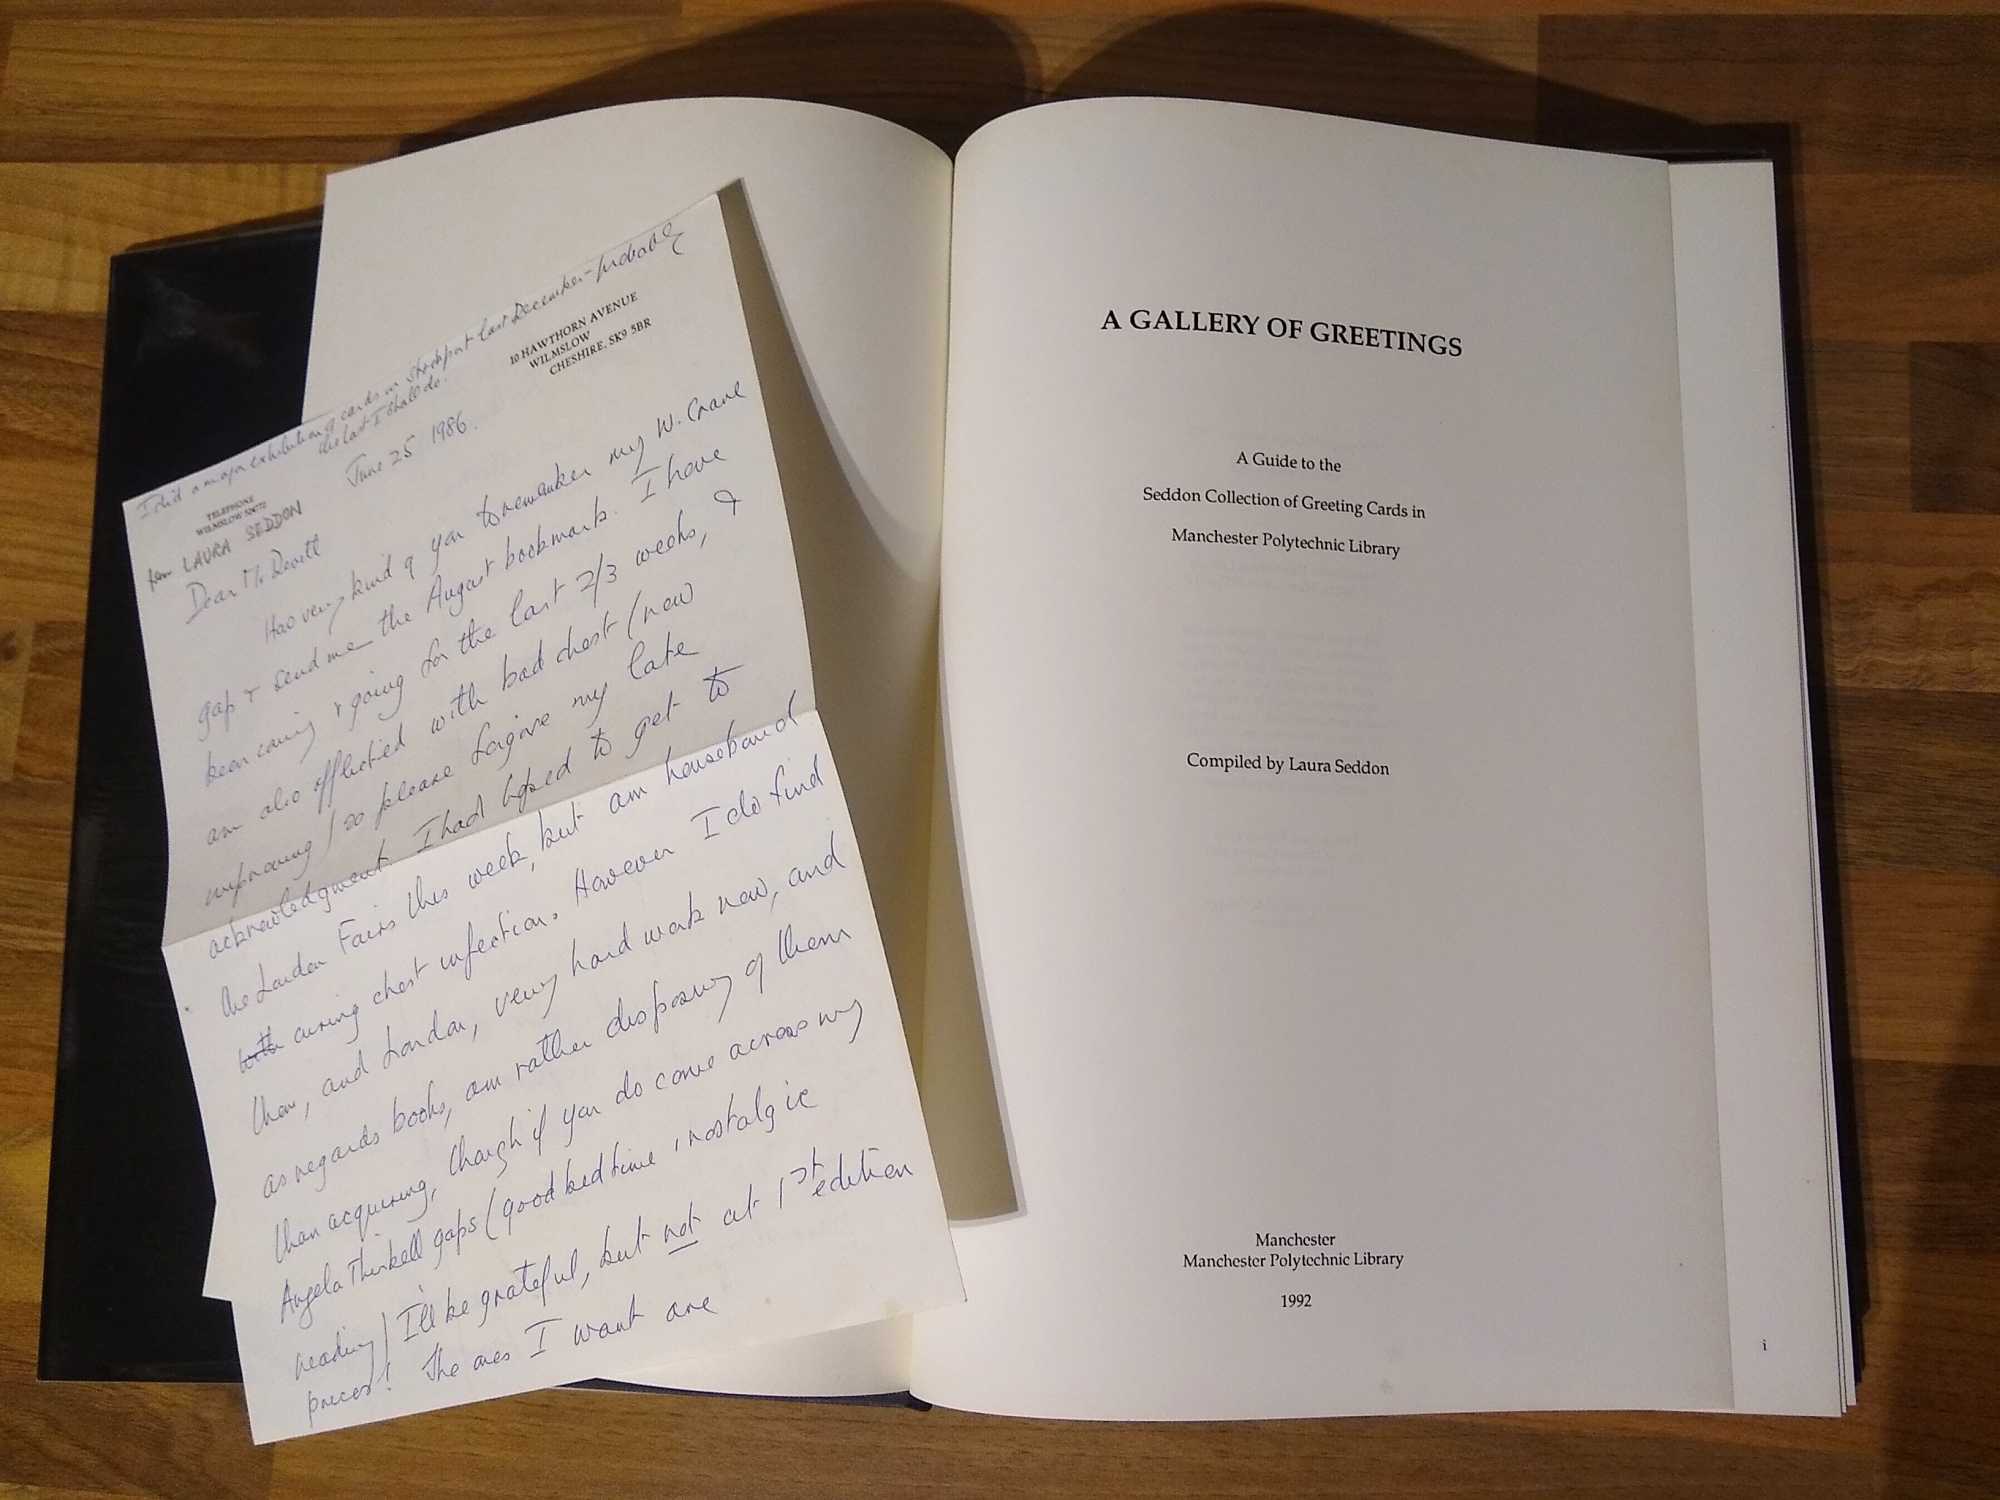 I did a major exhibition of cards in Stockport last December - probably
the last I shall do.
10 HAWTHORN AVENUE
WILMSLOW
CHESHIRE, SK9 5BR
June 25 1986.
TELEPHONE
WILMSLOW
from LAURA SEDDON
Dear Mr
How very kind of you to remember my W. Crane
gap & send me the August bookmark. I have
been coming & going for the last 2/3 weeks, &
am also afflicted with bad chest (now
improving) so please forgive my late
acknowledgment. I had hoped to get to
the London Fairs this week, but am housebound
with curing chest infection. However I do find
them, and London, very hard work now, and
as regards books, am rather disposing of them
than acquiring, though if you do come across my
Angela Thirkell gaps (good bedtime, nostalgic
reading) I'll be grateful, but not at 1st edition
prices! The ones I want are
A GALLERY OF GREETINGS
A Guide to the
Seddon Collection of Greeting Cards in
Manchester Polytechnic Library
Compiled by Laura Seddon
Manchester
Manchester Polytechnic Library
1992
i